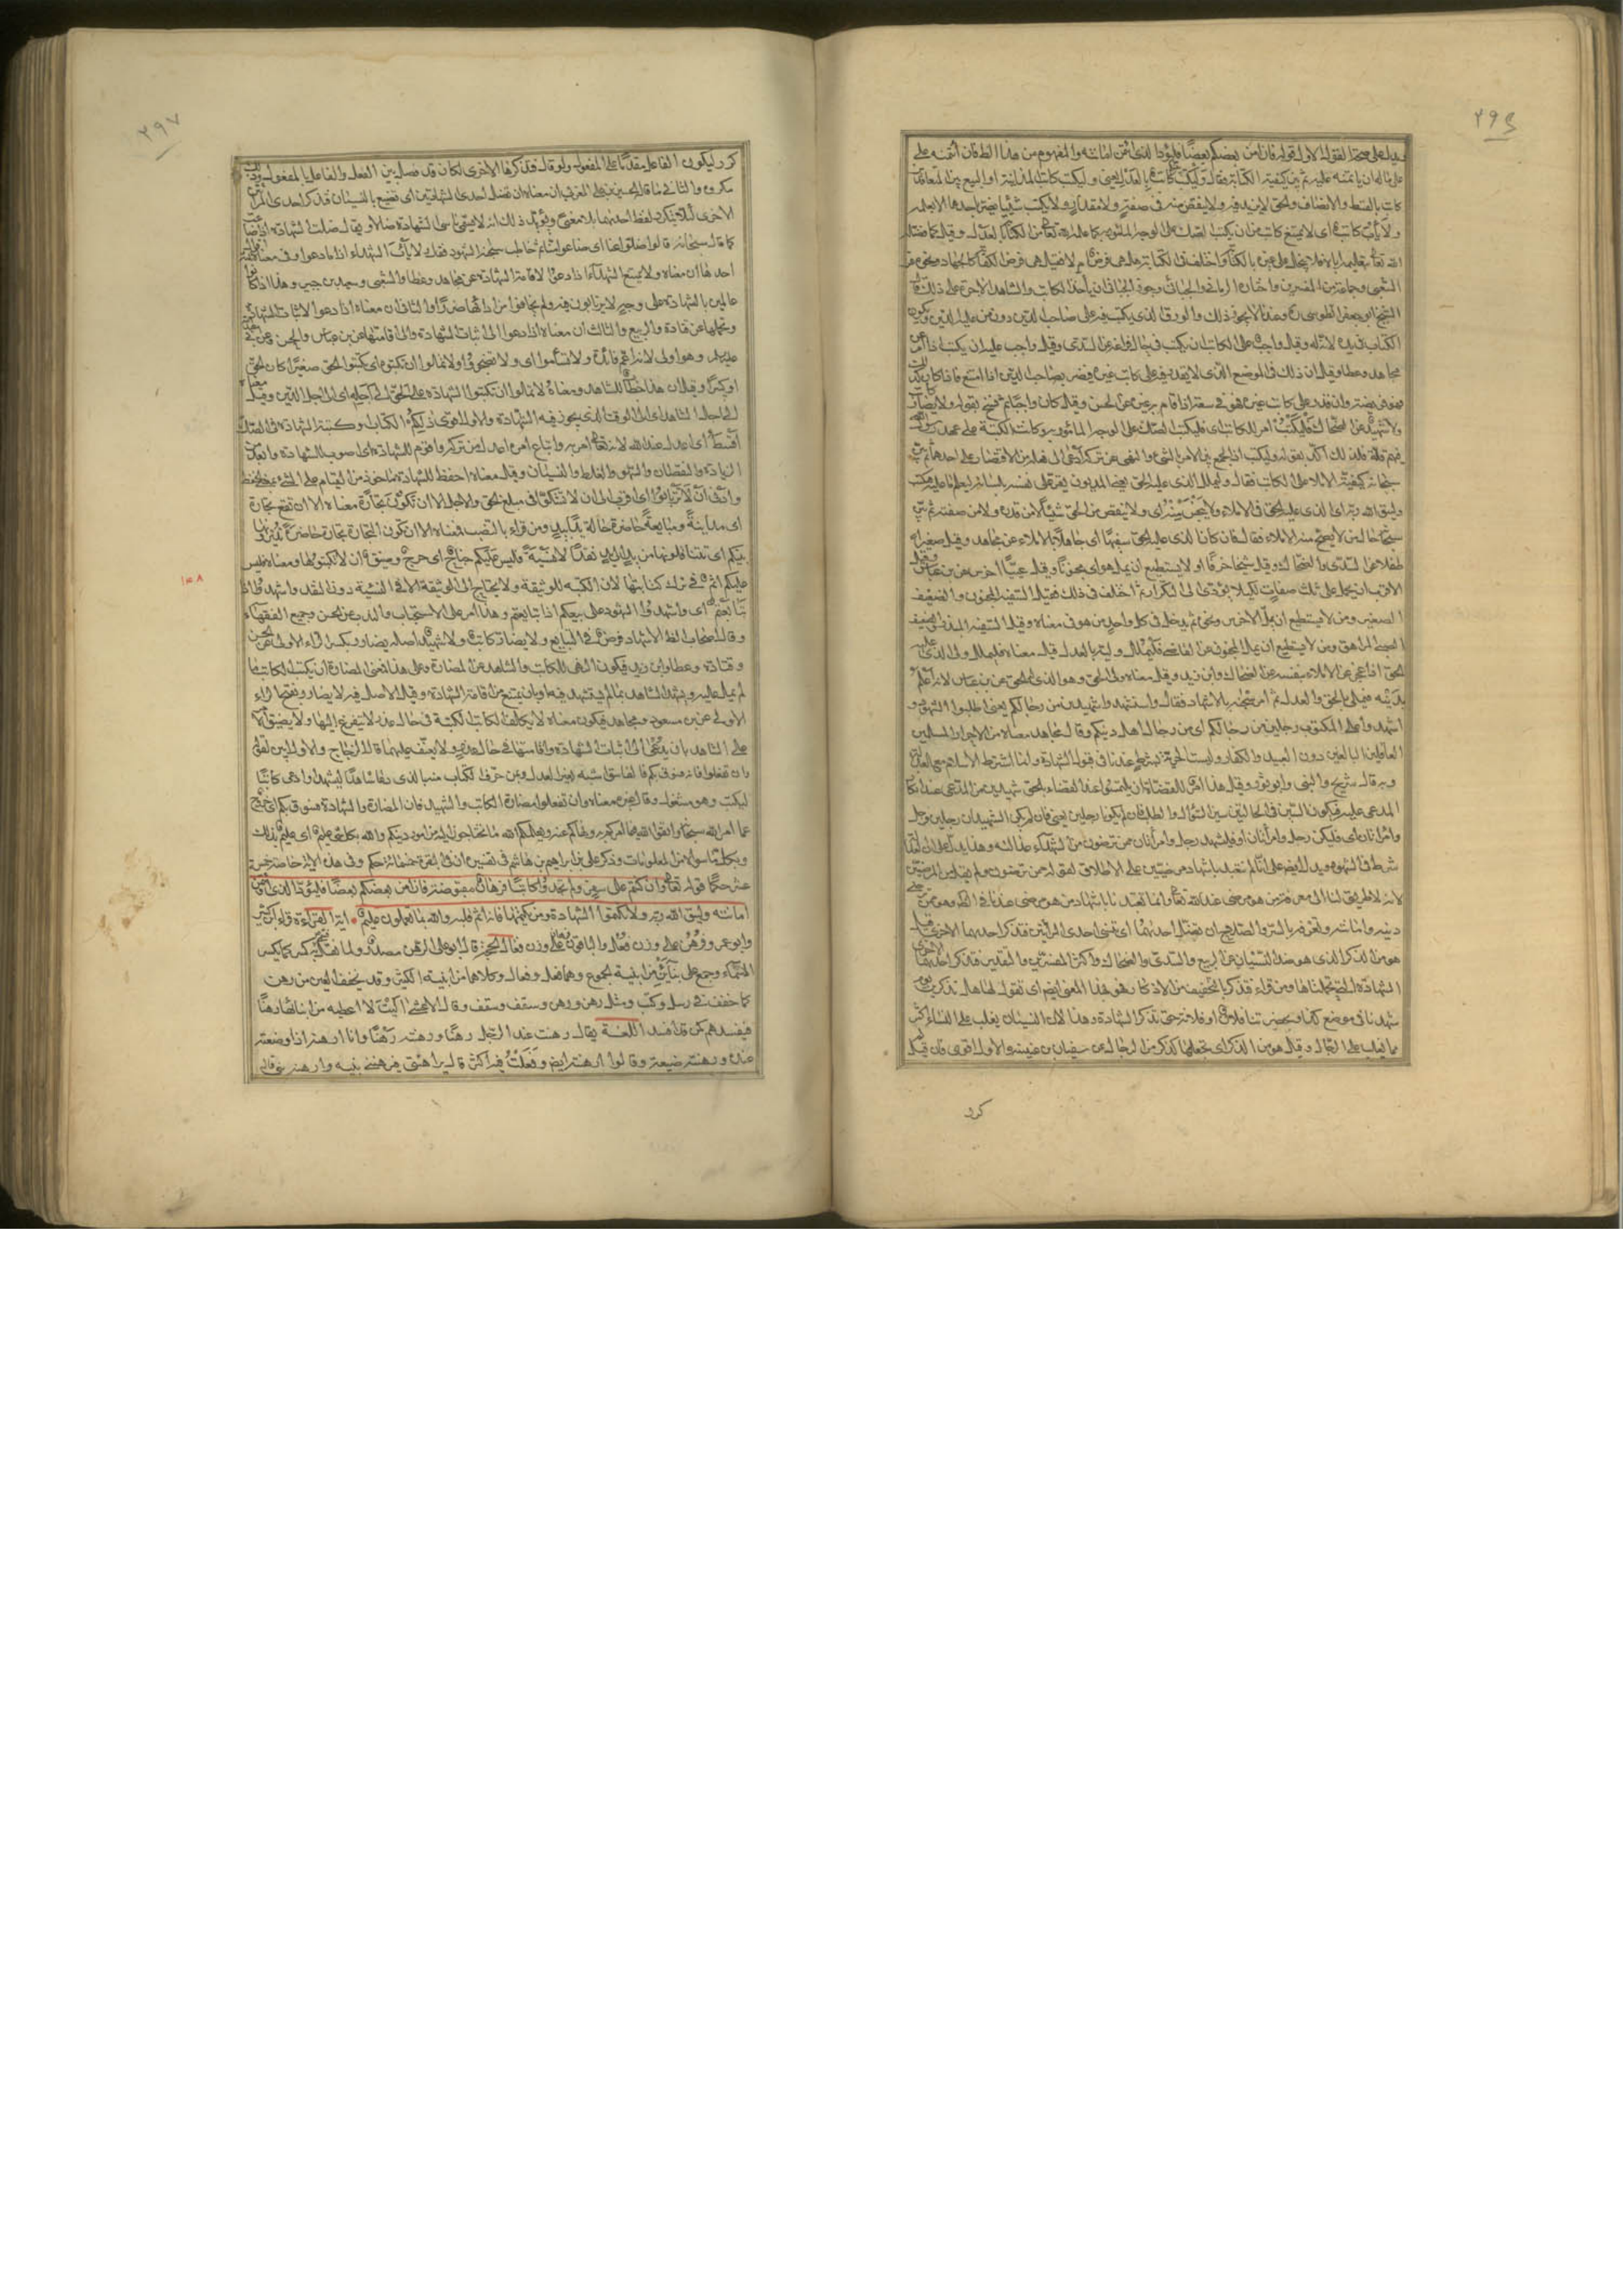 ٢٩٤
يدل على صحة القول الاول قوله فان امن بعضكم بعضا فليؤد الذي اؤتمن امانته والمفهوم من هذا الظ فان ائتمنه على
ثم بين كيفية الكتابة فقال وليكتب كاتب بالعدل يعني وليكتب كاتب المداينة او البيع بين المتعاقدين
كاتب بالقسط والانصاف والحق لا يزيد فيه ولا ينقص منه في صفة ولا مقدار ولا يكتب شيئا يضر باحدهما الا بعلمه
ولا يأب كاتب اى لا يمتنع كاتب من ان يكتب الصك على الوجه المأمور به كما علمه الله تعالى من الكتابة بالعدل وقيل كما فضله
الله تعالى بتعليمه اياه فلا يبخل على غيره بالكتابة واختلف في الكتابة هل هي فرض ام لا فقيل هي فرض على الكفاية كالجهاد
الشعبي وجماعة من المفسرين واختاره الرماني والجبائي وجوز الجبائي ان يأخذ الكاتب والشاهد الاجرة على ذلك قال
الشيخ ابو جعفر الطوسي ره وعندنا لا يجوز ذلك والورق الذي يكتب فيه على صاحب الدين دون من عليه الدين ويكون
الكتاب في يده لانه له وقيل واجب على الكاتب ان يكتب في حال فراغه عن السدي وقيل واجب عليه ان يكتب اذا امر عن
مجاهد وعطا وقيل ان ذلك في الموضع الذي لا يقدر فيه على كاتب غيره فيضر بصاحب الدين اذا امتنع فاذا كان كذلك
فهو فريضة وان قدر على كاتب غيره فهو في سعة اذا قام به غيره عن الحسن وقيل كان واجبا ثم نسخ بقوله ولا يضار كاتب
ولا شهيد عن الضحاك فليكتب امر للكاتب اى فليكتب الصك على الوجه المأمور به وكانت الكتبة على عهد رسول الله
فيهم قلة فلذلك اكد بقوله وليكتب اذ الجمع بين الامر بالشئ والنهي عن تركه ادعى الى فعله من الاقتصار على احدهما ثم بين
سبحانه كيفية الاملاء على الكاتب فقال وليملل الذي عليه الحق يعني المديون يقر على نفسه بلسانه ليعلم ما عليه فيكتب
وليتق الله ربه اى الذي عليه الحق في الاملاء ولا يبخس منه شيئا اى ولا ينقص من الحق شيئا لا من قدره ولا من صفته ثم بين
سبحانه حال من لا يصح منه الاملاء فقال فان كان الذي عليه الحق سفيها اى جاهلا بالاملاء عن مجاهد وقيل صغيرا او
طفلا عن السدي والضحاك وقيل شيخا خرفا او لا يستطيع ان يمل هو اى مجنونا وقيل عييا اخرس عن بن عباس وقيل
الاقرب ان يحمل على ثلث صفات لكيلا يؤدي الى التكرار ثم اختلف في ذلك فقيل السفيه المجنون والضعيف
الصغير ومن لا يستطيع ان يمل الاخرس ونحوه ثم يدخل في كل واحد من هو في معناه وقيل السفيه المبذر والضعيف
الصبي المراهق ومن لا يستطيع ان يمل المجنون عن القاضي فليملل وليه بالعدل قيل معناه فليملل ولي الذي عليه
الحق اذا عجز عن الاملاء بنفسه عن الضحاك وابن زيد وقيل معناه ولي الحق وهو الذي له الحق عن بن عباس لانه اعلم
بدينه فيملي بالحق والعدل ثم امر سبحانه بالاشهاد فقال واستشهدوا شهيدين من رجالكم يعني اطلبوا الشهود و
اشهدوا على المكتوب رجلين من رجالكم اى من رجال اهل دينكم وقال مجاهد معناه من الاحرار المسلمين
العاقلين البالغين دون العبيد والكفار وليست الحرية بشرط عندنا في قبول الشهادة وانما اشترط الاسلام مع العدالة
وبه قال شريح والبتي وابو ثور وقيل هذا امر للقضاة ان يلتمسوا عند القضاء بالحق شهيدين من المدعي عند انكار
المدعى عليه فيكون السين في الحالتين سين السؤال والطلب فان لم يكونا رجلين يعني فان لم يكن الشهيدان رجلين فرجل
وامرأتان اى فليكن رجل وامرأتان او فليشهد رجل وامرأتان ممن ترضون من الشهداء عدالته وهذا يدل على ان العدالة
شرط في الشهود ويدل ايضا على انا لم نتعبد باشهاد مرضيين على الاطلاق لقوله ممن ترضون ولم يقل من المرضيين
لانه لا طريق لنا الى معرفة من هو مرضي عند الله تعالى وانما تعبدنا باشهاد من هو مرضي عندنا في الظ وهو من نرضى
دينه وامانته ونعرفه بالستر والصلاح ان تضل احديهما اى تنسى احدى المرأتين فتذكر احديهما الاخرى قيل
هو من الذكر الذي هو ضد النسيان عن الربيع والسدي والضحاك واكثر المفسرين والتقدير فتذكر احديهما الاخرى
الشهادة التي تحملتاها ومن قراء فتذكر بالتخفيف من الاذكار فهو بهذا المعنى ايضا اى تقول لها هل تذكرين يوم
شهدنا في موضع كذا وبحضرتنا فلان او فلانة حتى تذكر الشهادة وهذا لان النسيان يغلب على النساء اكثر
مما يغلب على الرجال وقيل هو من الذكر اى يجعلها كذكر من الرجال عن سفيان بن عيينة والاول اقوى فان قيل لم
كرر
٢٩٧
كرر ليكون الفاعل مقدما على المفعول ولو قال فتذكرها الاخرى لكان قد فصل بين الفعل والفاعل بالمفعول وذلك
مكروه والثاني ما قاله الحسين بن علي المغربي ان معناه ان تضل احدى الشهادتين اى تضيع بالنسيان فتذكر احدى المرأتين
الاخرى لئلا يتكرر لفظ احديهما بلا معنى ويؤيد ذلك انه لا يسمى ناسي الشهادة ضالا ويقال ضلت الشهادة اذا ضاعت
كما قال سبحانه قالوا ضلوا عنا اى ضاعوا منا ثم خاطب سبحانه الشهود فقال ولا يأب الشهداء اذا ما دعوا وفي معناه ثلثة
احدها ان معناه ولا يمتنع الشهداء اذا دعوا لاقامة الشهادة عن مجاهد وعطا والشعبي وسعيد بن جبير وهذا اذا كانوا
عالمين بالشهادة على وجه لا يرتابون فيه ولم يخافوا من ادائها ضررا والثاني ان معناه اذا دعوا لاثبات الشهادة
وتحملها عن قتادة والربيع والثالث ان معناه اذا دعوا الى اثبات الشهادة والى اقامتها عن بن عباس والحسن
وهو اولى لانه اعم فائدة ولا تسأموا اى ولا تضجروا ولا تملوا ان تكتبوه اى تكتبوا الحق صغيرا كان الحق
او كبيرا وقيل ان هذا خطاب للشاهد ومعناه لا تملوا ان تكتبوا الشهادة على الحق الى اجله اى الى اجل الدين وقيل معناه
الى اجل الشاهد اى الى الوقت الذي يجوز فيه الشهادة والاول اقوى ذلكم الكتاب وكتبة الشهادة في الصك
اقسط اى اعدل عند الله لانه تعالى امر به واتباع امره اعدل من تركه واقوم للشهادة اى اصوب للشهادة وابعد من
الزيادة والنقصان والسهو والغلط والنسيان وقيل معناه احفظ للشهادة مأخوذ من القيام على الشئ بمعنى الحفظ
وادنى ان لا ترتابوا اى اقرب الى ان لا تشكوا في مبلغ الحق والاجل الا ان تكون تجارة معناه الا ان تقع تجارة
اى مداينة ومبايعة حاضرة حالة يدا بيد ومن قراء بالنصب فمعناه الا ان تكون التجارة تجارة حاضرة تديرونها
بينكم اى تتناقلونها من يد الى يد نقدا لا نسيئة فليس عليكم جناح اى حرج وضيق ان لا تكتبوها ومعناه فليس
عليكم اثم في ترك كتابتها لان الكتبة للوثيقة ولا يحتاج الى الوثيقة الا في النسيئة دون النقد واشهدوا اذا
تبايعتم اى واشهدوا الشهود على بيعكم اذا تبايعتم وهذا امر على الاستحباب والندب عن الحسن وجميع الفقهاء
وقال اصحاب الظ الاشهاد فرض في التبايع ولا يضار كاتب ولا شهيد اصله يضارر بكسر الراء الاولى عن الحسن
وقتادة وعطا وابن زيد فيكون النهي للكاتب والشاهد عن المضارة وعلى هذا فمعنى المضارة ان يكتب الكاتب ما
لم يمل عليه ويشهد الشاهد بما لم يستشهد فيه او بان يمتنع من اقامة الشهادة وقيل الاصل فيه لا يضارر بفتح الراء
الاولى عن بن مسعود ومجاهد فيكون معناه لا يكلف الكاتب الكتبة في حال عذر لا يتفرغ اليها ولا يضيق الامر
على الشاهد بان يدعى الى اثبات الشهادة واقامتها في حال عذر ولا يعنف عليهما قال الزجاج والاول ابين لقوله
وان تفعلوا فانه فسوق بكم فالفاسق اشبه بغير العدل وبمن حرف الكتاب منه بالذي دعا شاهدا ليشهد او دعى كاتبا
ليكتب وهو مشغول وقال غيره معناه وان تفعلوا مضارة الكاتب والشهيد فان المضارة والشهادة فسوق بكم اى خروج
عما امر الله سبحانه واتقوا الله فيما امركم به ونهاكم عنه ويعلمكم الله ما تحتاجون اليه من امور دينكم والله بكل شئ عليم اى عليم بذلك
وبكل ما سواه من المعلومات وذكر علي بن ابراهيم بن هاشم في تفسيره ان في البقرة خمسمائة حكم وفي هذه الاية خاصة خمسة
عشر حكما قوله تعالى وان كنتم على سفر ولم تجدوا كاتبا فرهان مقبوضة فان امن بعضكم بعضا فليؤد الذي اؤتمن
امانته وليتق الله ربه ولا تكتموا الشهادة ومن يكتمها فانه اثم قلبه والله بما تعملون عليم اية القراءة قراء ابن كثير
وابو عمرو فرهن على وزن فعل والباقون فرهان على وزن فعال الحجة قال ابو علي الرهن مصدر ولما نقل كسر كما يكسر
الاسماء وجمع على بنائين من ابنية الجموع وهما فعل وفعال وكلاهما من ابنية الكثير وقد يخفف العين من رهن
كما خفف في رسل وكتب ومثل رهن ورهن وسقف وسقف وقال الاعشى اليت لا اعطيه من ابنائنا رهنا
فيفسدهم كمن قد افسدا اللغة يقال رهنت عند الرجل رهنا ورهنته رهنا وانا ارهنه اذا وضعته
عنده ورهنته ضيعة وقالوا ارهنته ايضا وفعلت فيه اكثر قال
١٥٨